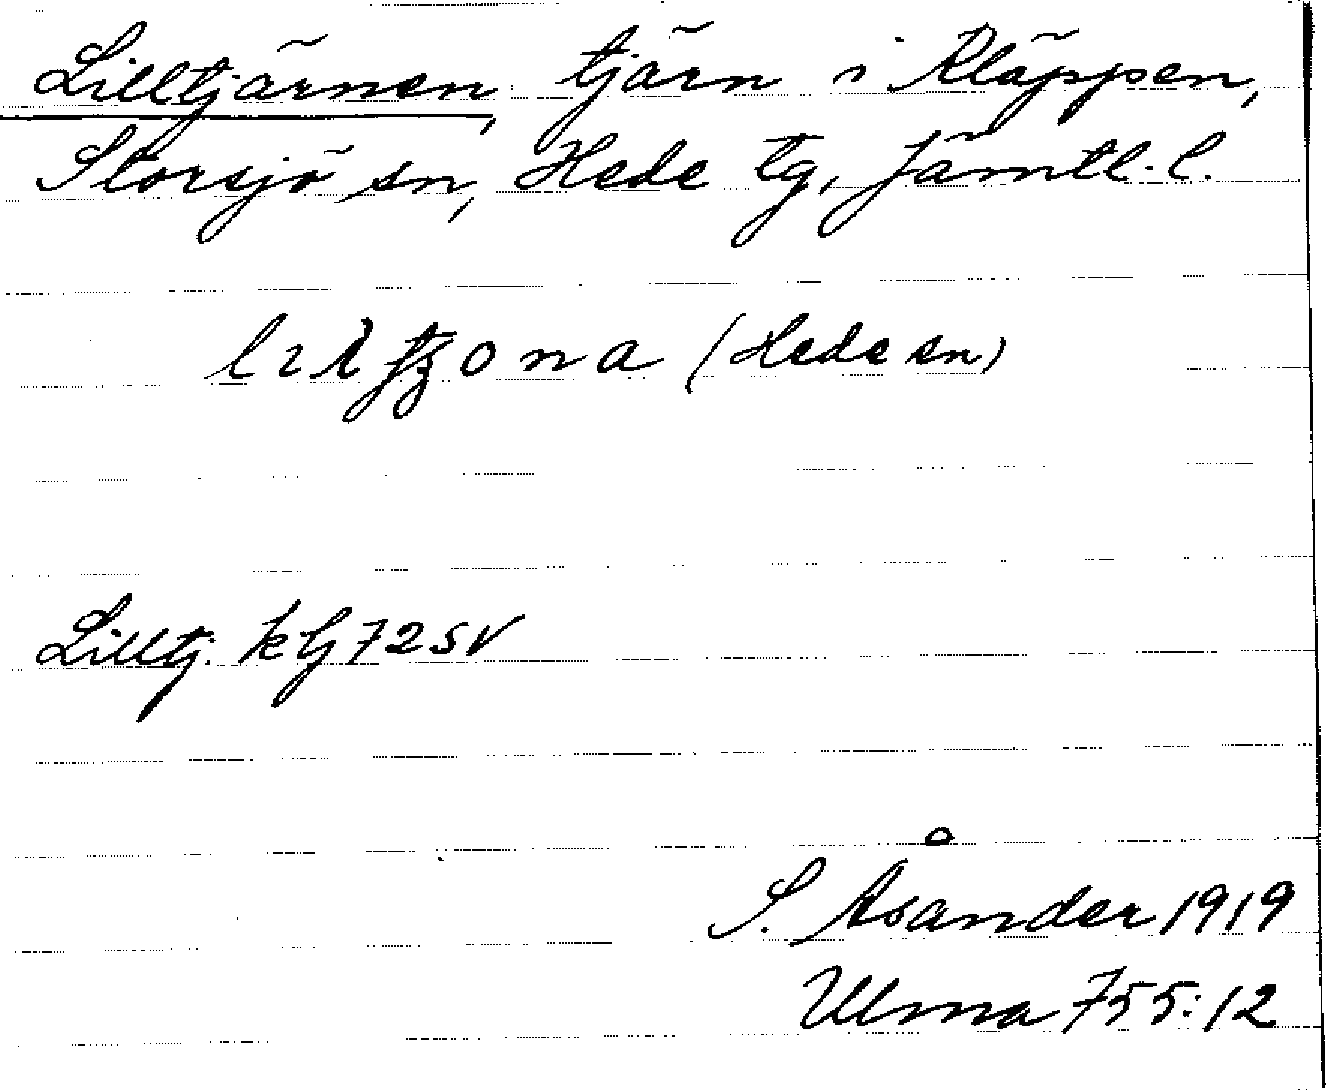 Lilltjärnen, tjärn i Kläppen,
Storsjö sn, Hede tg, Jämtl. l.
(Hede sn)
Lilltj. k lj 72 SV
S. Åsander 1919
Ulma 755:12